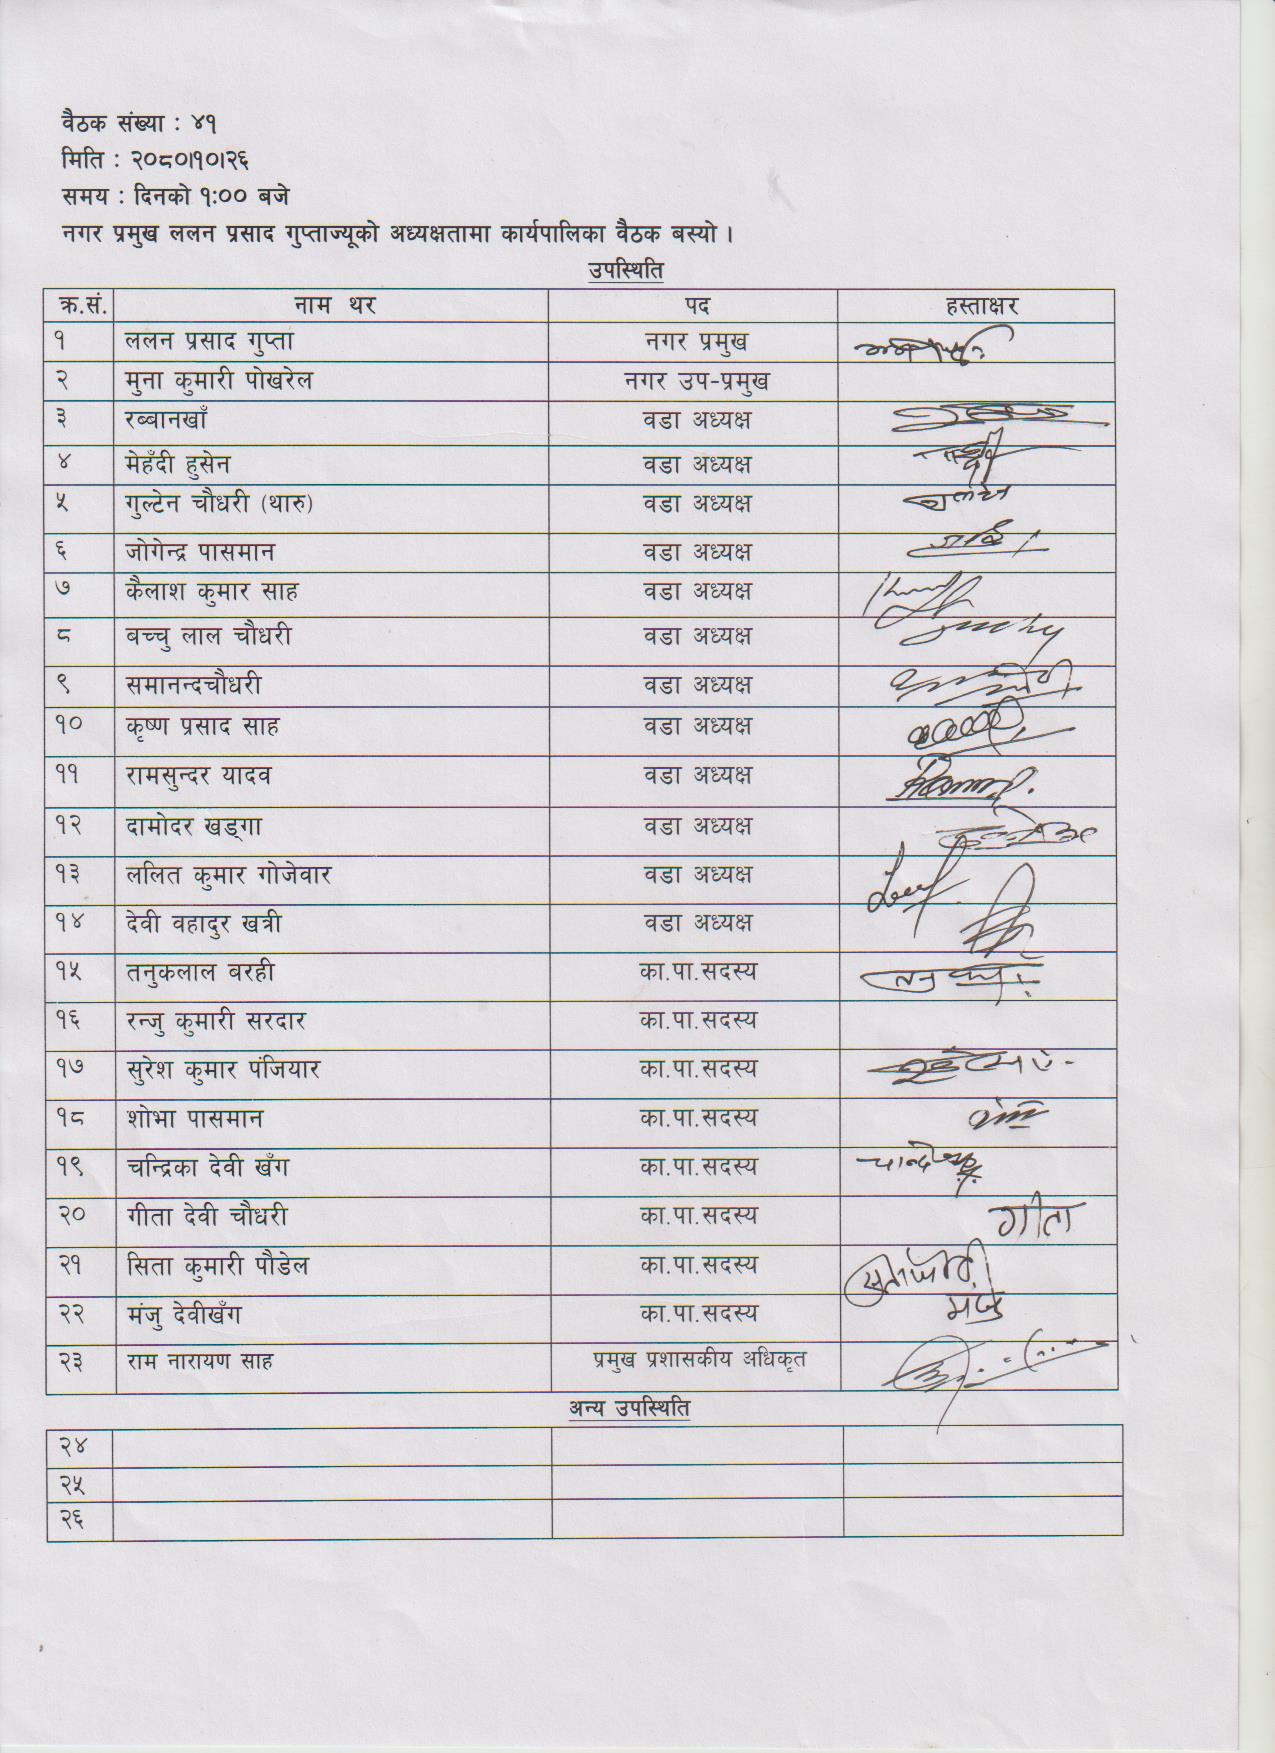 वैठक संख्या : ४१
मिति : २०८०।१०।२६
समय : दिनको १:०० बजे
नगर प्रमुख ललन प्रसाद गुप्ताज्यूको अध्यक्षतामा कार्यपालिका वैठक बस्यो ।
उपस्थिति
क्र.सं. नाम थर पद हस्ताक्षर
१ ललन प्रसाद गुप्ता नगर प्रमुख
२ मुना कुमारी पोखरेल नगर उप-प्रमुख
३ रब्बानखाँ वडा अध्यक्ष
४ मेहँदी हुसेन वडा अध्यक्ष
५ गुल्टेन चौधरी (थारु) वडा अध्यक्ष
६ जोगेन्द्र पासमान वडा अध्यक्ष
७ कैलाश कुमार साह वडा अध्यक्ष
८ बच्चु लाल चौधरी वडा अध्यक्ष
९ समानन्दचौधरी वडा अध्यक्ष
१० कृष्ण प्रसाद साह वडा अध्यक्ष
११ रामसुन्दर यादव वडा अध्यक्ष
१२ दामोदर खड्गा वडा अध्यक्ष
१३ ललित कुमार गोजेवार वडा अध्यक्ष
१४ देवी वहादुर खत्री वडा अध्यक्ष
१५ तनुकलाल बरही का.पा.सदस्य
१६ रन्जु कुमारी सरदार का.पा.सदस्य
१७ सुरेश कुमार पंजियार का.पा.सदस्य
१८ शोभा पासमान का.पा.सदस्य
१९ चन्द्रिका देवी खँग का.पा.सदस्य
२० गीता देवी चौधरी का.पा.सदस्य गीता
२१ सिता कुमारी पौडेल का.पा.सदस्य
२२ मंजु देवीखँग का.पा.सदस्य मंजु
२३ राम नारायण साह प्रमुख प्रशासकीय अधिकृत
अन्य उपस्थिति
२४
२५
२६